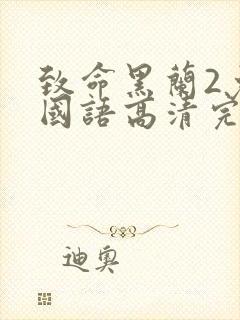 致命黑蘭2
國語高清完
迪奧